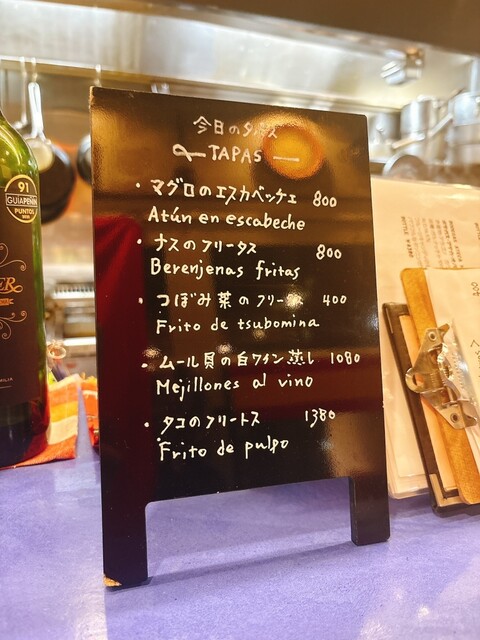 今日のタパス
TAPAS
・マグロのエスカベッチェ 800
Atún en escabeche
・ナスのフリータス 800
Berenjenas fritas
・つぼみ菜のフリータス 400
Frito de tsubomina
・ムール貝の白ワイン蒸し 1080
Mejillones al vino
・タコのフリートス 1380
Frito de pulpo
91
GUÍAPEÑÍN
PUNTOS